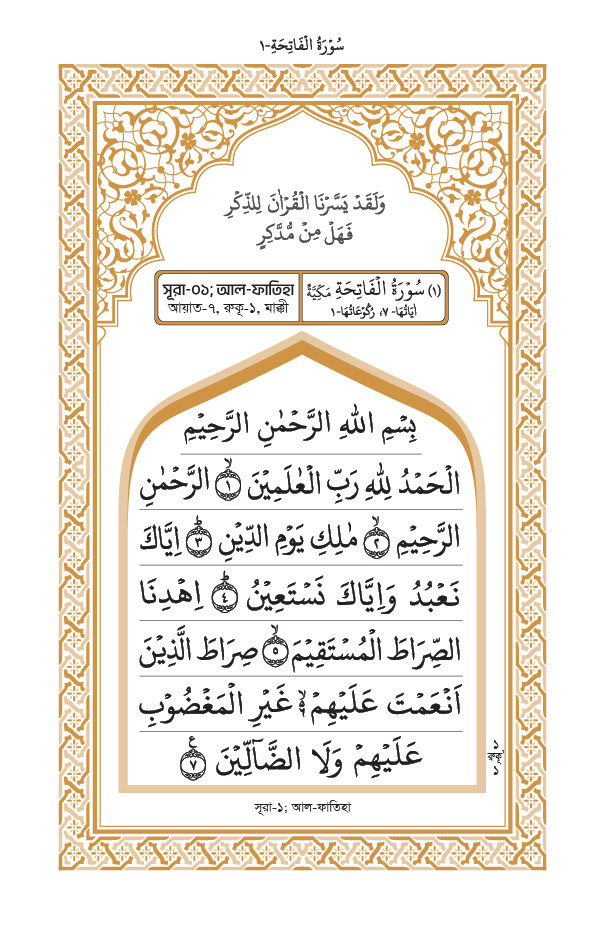 سُوْرَةُ الْفَاتِحَةِ-١
وَلَقَدْ يَسَّرْنَا الْقُرْاٰنَ لِلذِّكْرِ
فَهَلْ مِنْ مُّدَّكِرٍ
(١) سُوْرَةُ الْفَاتِحَةِ مَكِّيَّةٌ
اٰيَاتُهَا-٧، رُكُوْعَاتُهَا-١
সূরা-০১; আল-ফাতিহা
আয়াত-৭, রুকূ-১, মাক্কী
بِسْمِ اللهِ الرَّحْمٰنِ الرَّحِيْمِ
الْحَمْدُ لِلّٰهِ رَبِّ الْعٰلَمِيْنَ ۙ﴿١﴾ الرَّحْمٰنِ
الرَّحِيْمِ ۙ﴿٢﴾ مٰلِكِ يَوْمِ الدِّيْنِ ؕ﴿٣﴾ اِيَّاكَ
نَعْبُدُ وَاِيَّاكَ نَسْتَعِيْنُ ؕ﴿٤﴾ اِهْدِنَا
الصِّرَاطَ الْمُسْتَقِيْمَ ۙ﴿٥﴾ صِرَاطَ الَّذِيْنَ
اَنْعَمْتَ عَلَيْهِمْ ۙ۬ غَيْرِ الْمَغْضُوْبِ
عَلَيْهِمْ وَلَا الضَّآلِّيْنَ ﴿٧﴾ ع
১
রুকূ
১
সূরা-১; আল-ফাতিহা